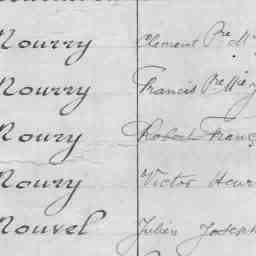 Nourry Clement Pre M
Nourry Francis Pre Mie
Noury Robert Franç
Noury Victor Henr
Nouvel Julien Joseph